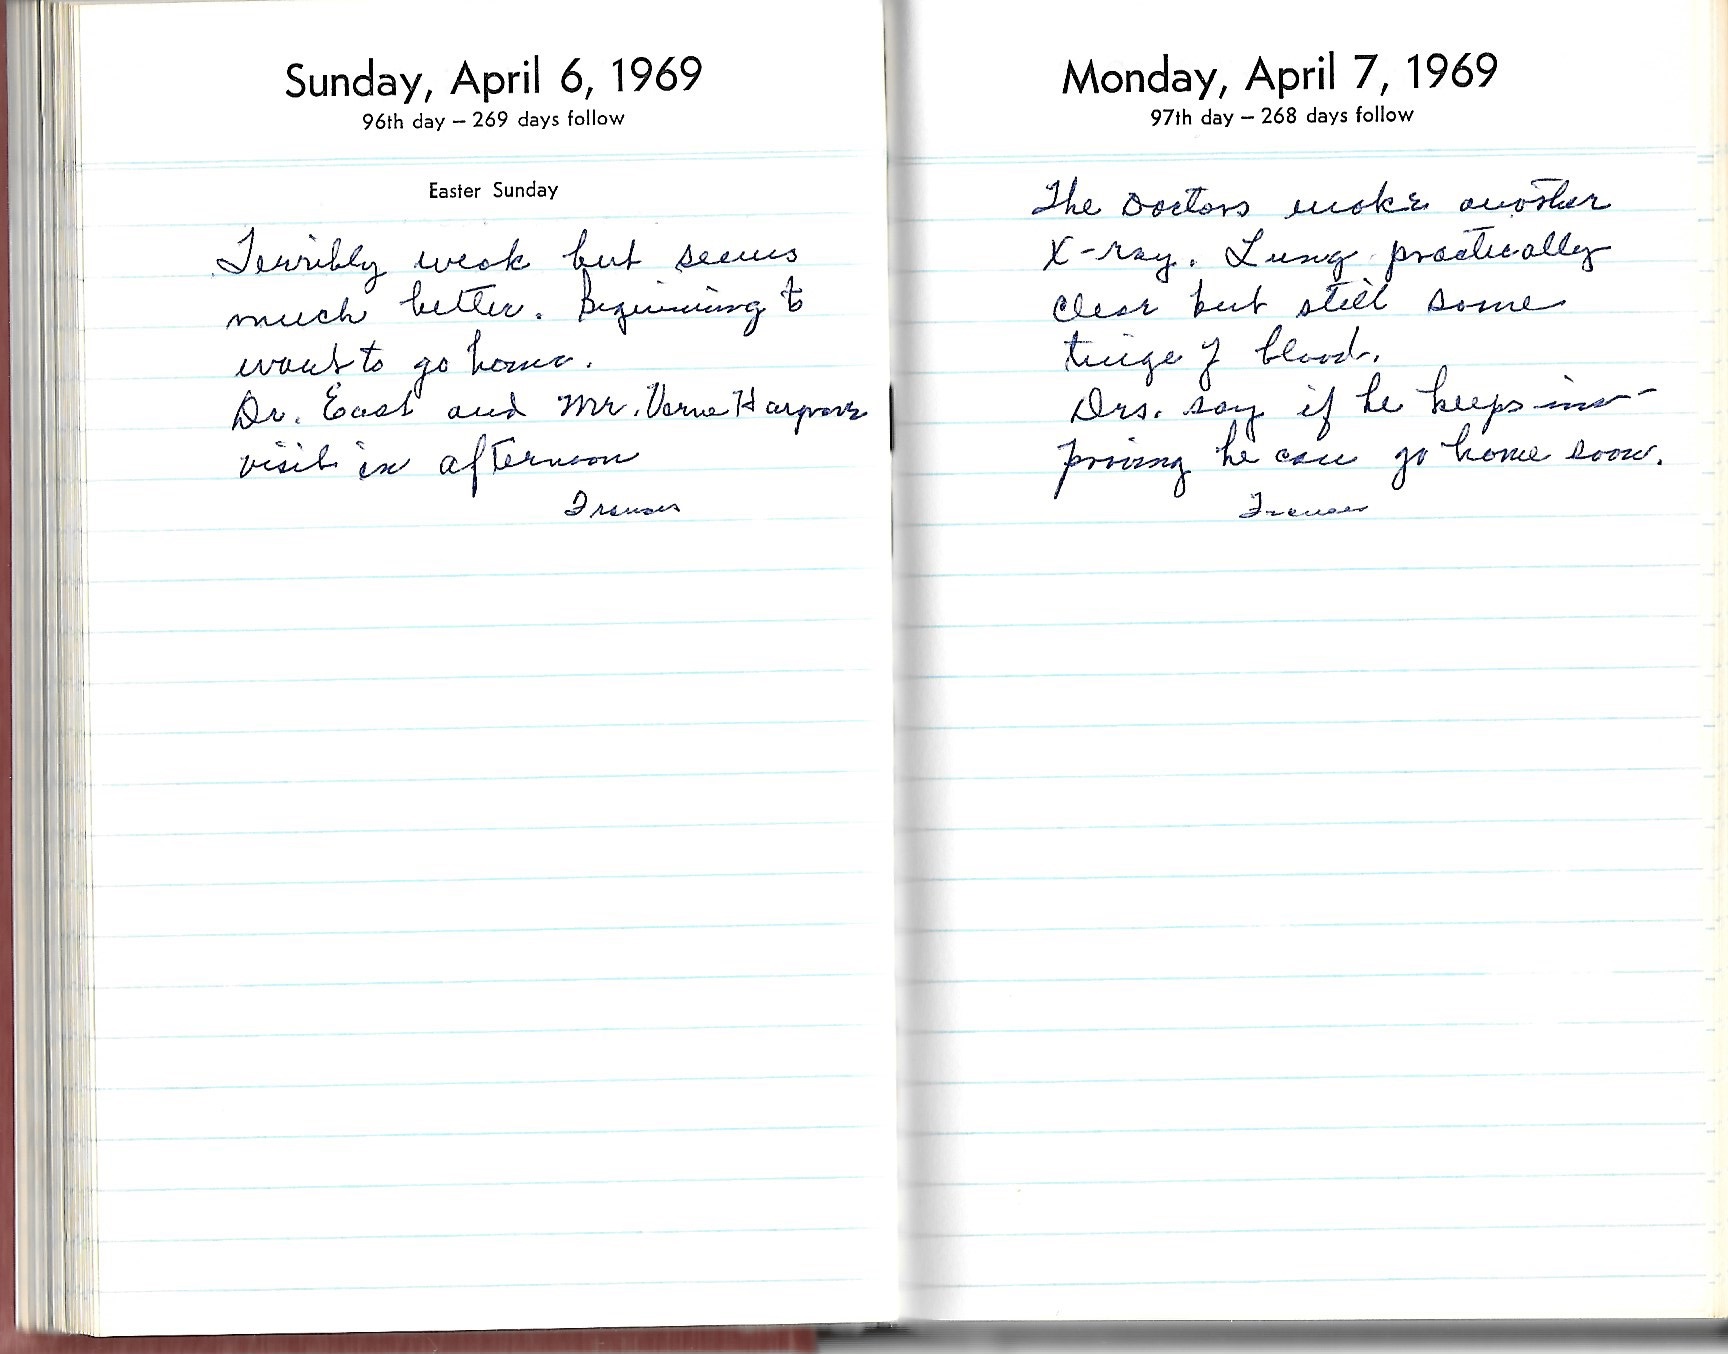 Sunday, April 6, 1969
96th day – 269 days follow
Easter Sunday
Terribly weak but seems
much better. Beginning to
want to go home.
Dr. East and Mr. Verne Hargrove
visit in afternoon
Frances
Monday, April 7, 1969
97th day – 268 days follow
The Doctors make another
X-ray. Lung practically
clear but still some
tinge of blood.
Drs. say if he keeps im-
proving he can go home soon.
Frances